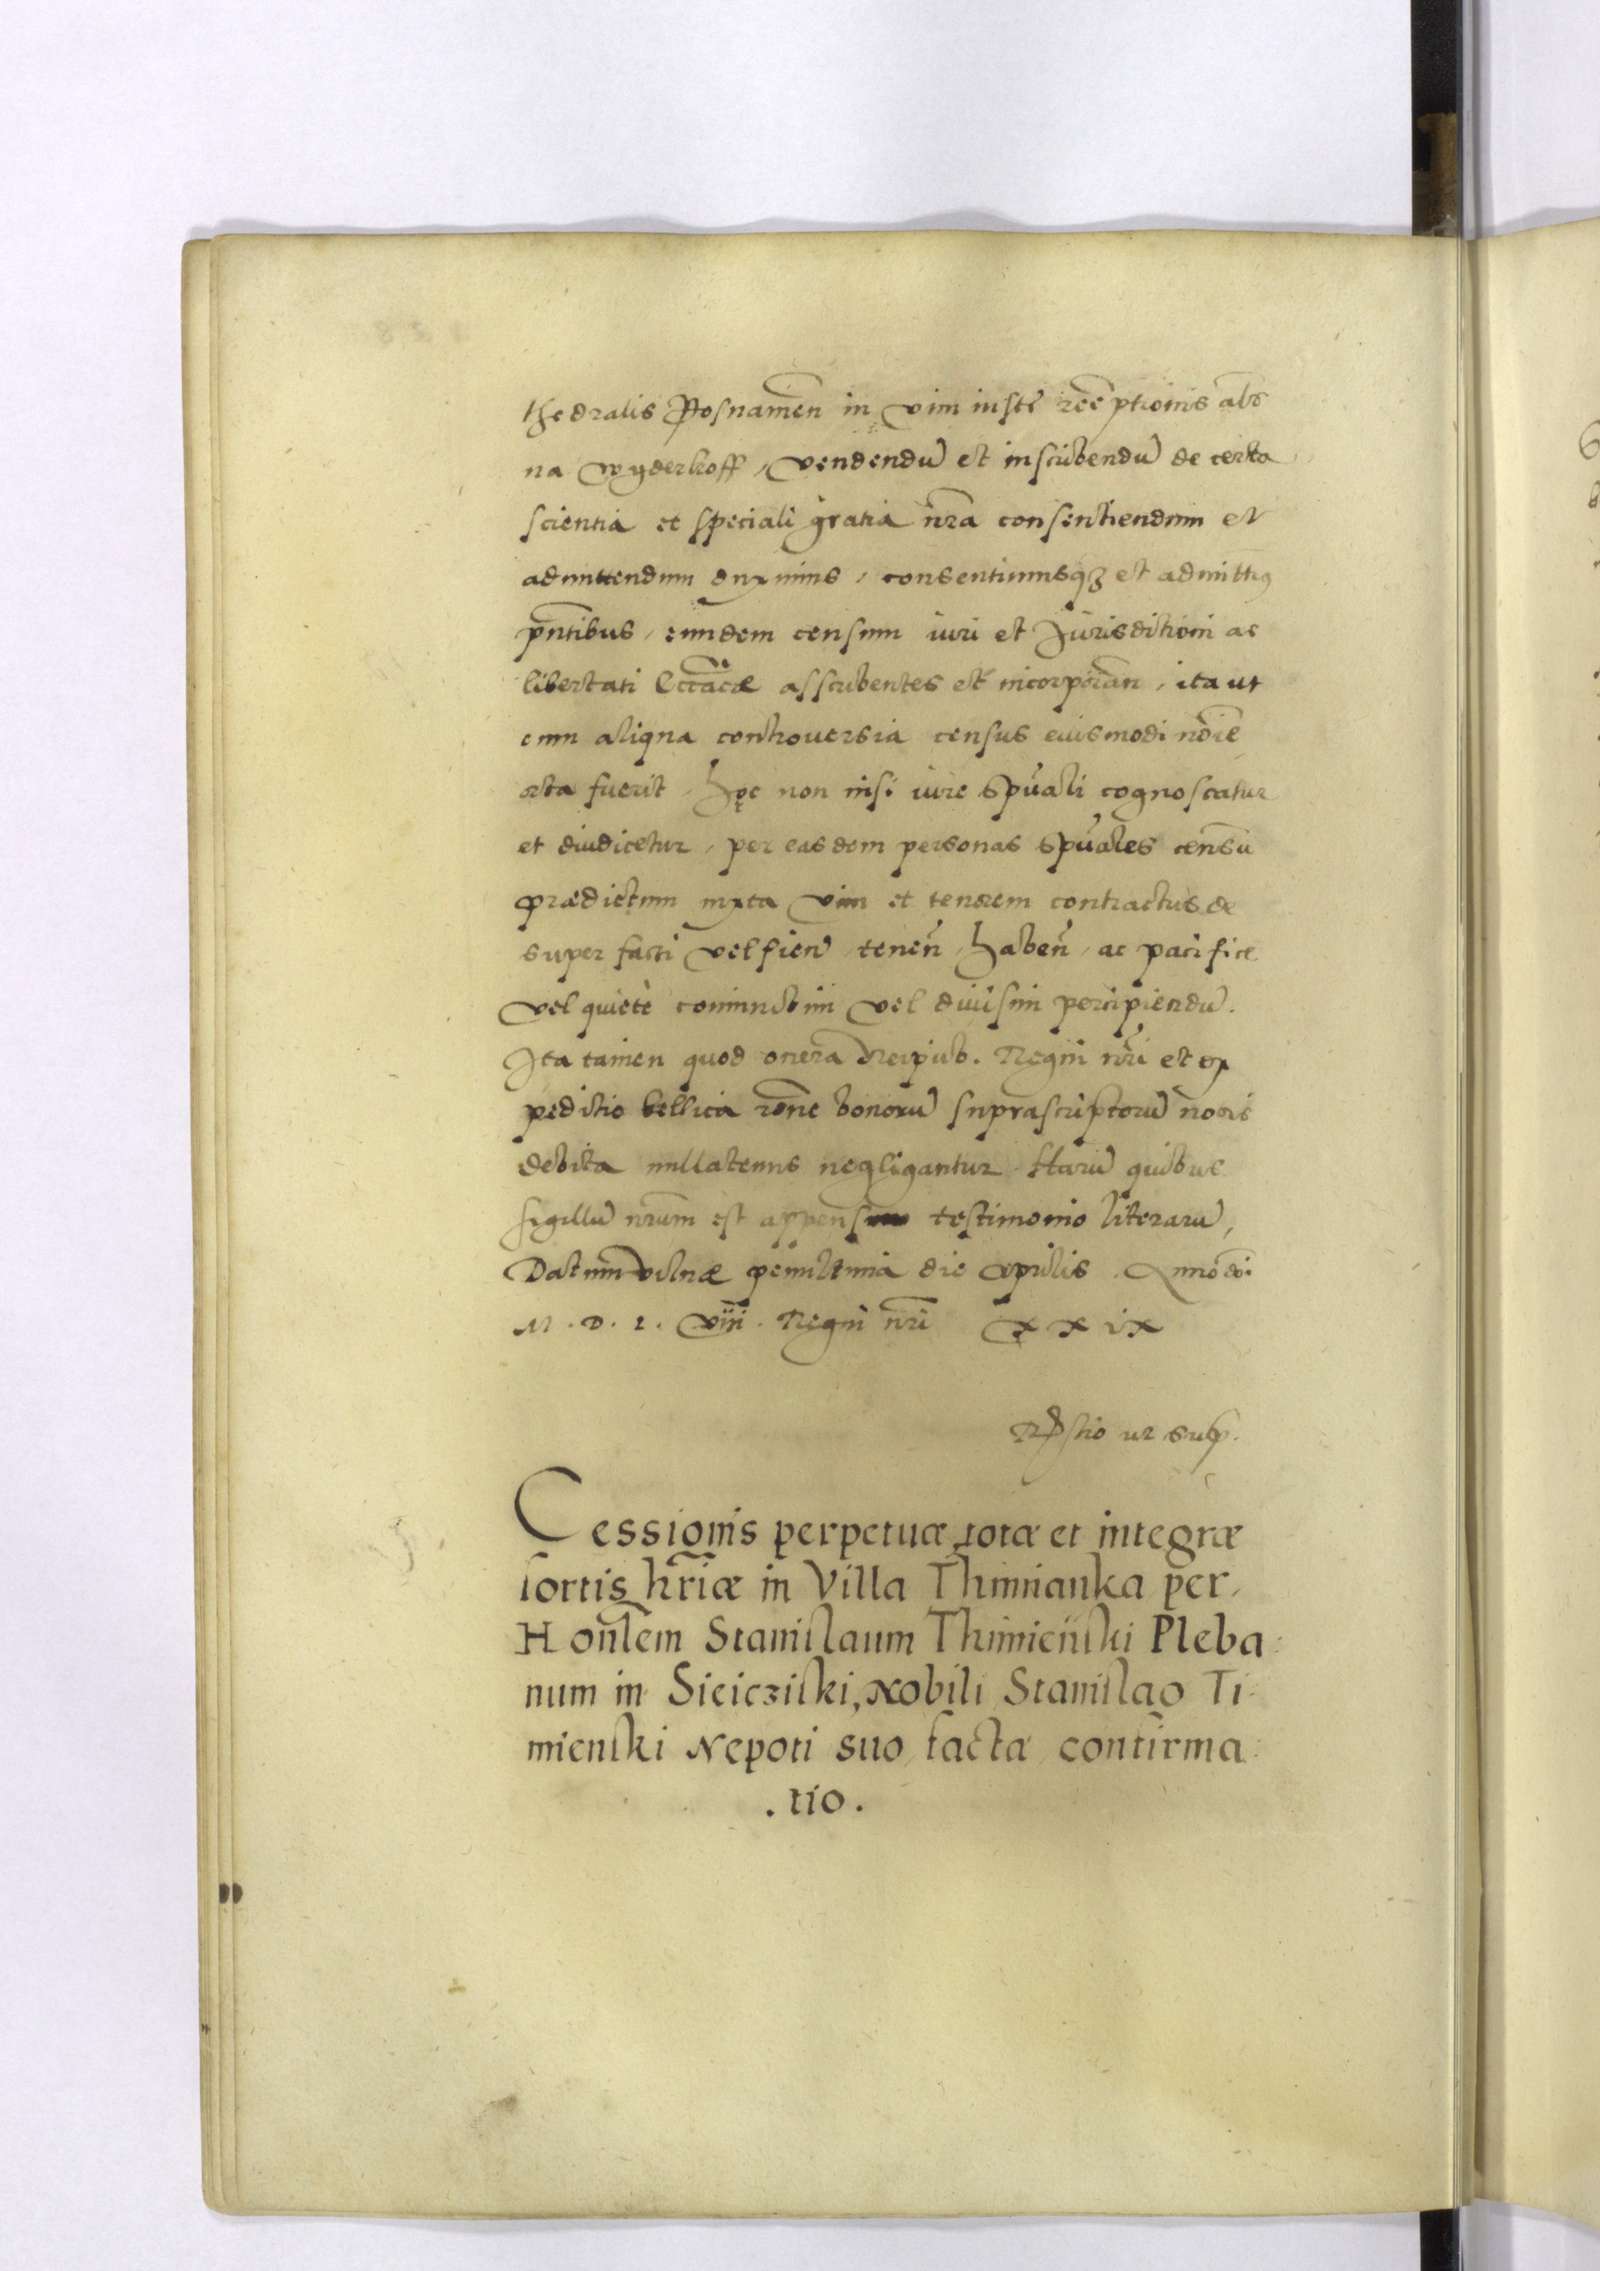 thedralis Posnamen in vim iuste reeptionis als
na wyderkoff, vendendu et inscribendu de certa
scientia et speciali gratia nra consentiendum et
admittendum duximus, consentimusqꝫ et admittimꝰ
pntibus, eundem censum iuri et Jurisditioni ac
libertati Eccacæ asscribentes et incorporan, ita ut
cum aliqua controuersia census eiusmodi noie
orta fuerit, hęc non nisi iure spuali cognoscatur
et diudicetur, per easdem personas spuales censu
prædictum iuxta vim et tenorem contractus de
super facti vel fien tenen, haben, ac pacifice
vel quietè coniunctim vel diuisim percipiendu.
Ita tamen quod onera Reipub. Regni nri et ex
peditio bellica rone bonoru suprascriptoru nobis
debita nullatenus negligantur. Haru quibus
sigillu nrum est appensum testimonio literaru,
Datum Vilnæ penultima die Aprilis. Anno doi
M. D. L. viii. Regni nri xxix
Rstio ut sup.
Cessionis perpetuæ totæ et integræ
sortis hriæ in Villa Thimianka per
Honlem Stanislaum Thimieński Pleba:
num in Sieicziski, Nobili Stanislao Ti
mienski Nepoti suo facta confirma:
. tio .